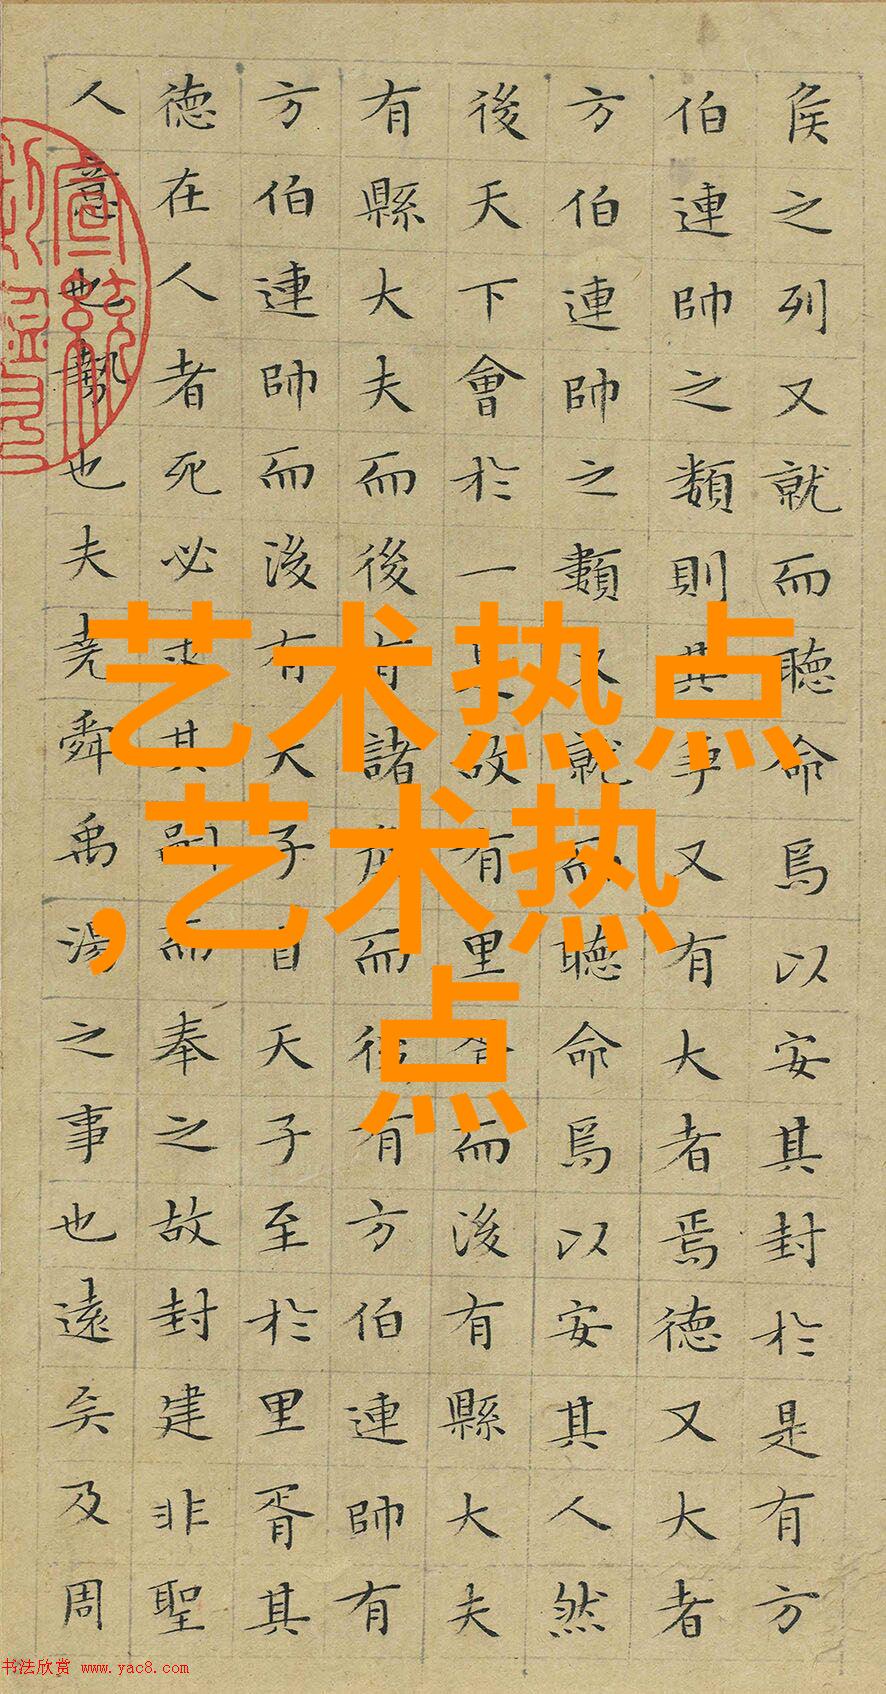 侯之列又就而聽命焉以安其封於是有方
伯連帥之類則其事又有大者焉德又大者
方伯連帥之類又就而聽命焉以安其人然
後天下會於一是故有里胥而後有縣大夫
有縣大夫而後有諸侯而後有方伯連帥有
方伯連帥而後有天子自天子至於里胥其
德在人者死必求其嗣而奉之故封建非聖
人意也勢也夫堯舜禹湯之事也遠矣及周
宣統
艺术热点
,艺术热
点
书法欣赏 www.yac8.com